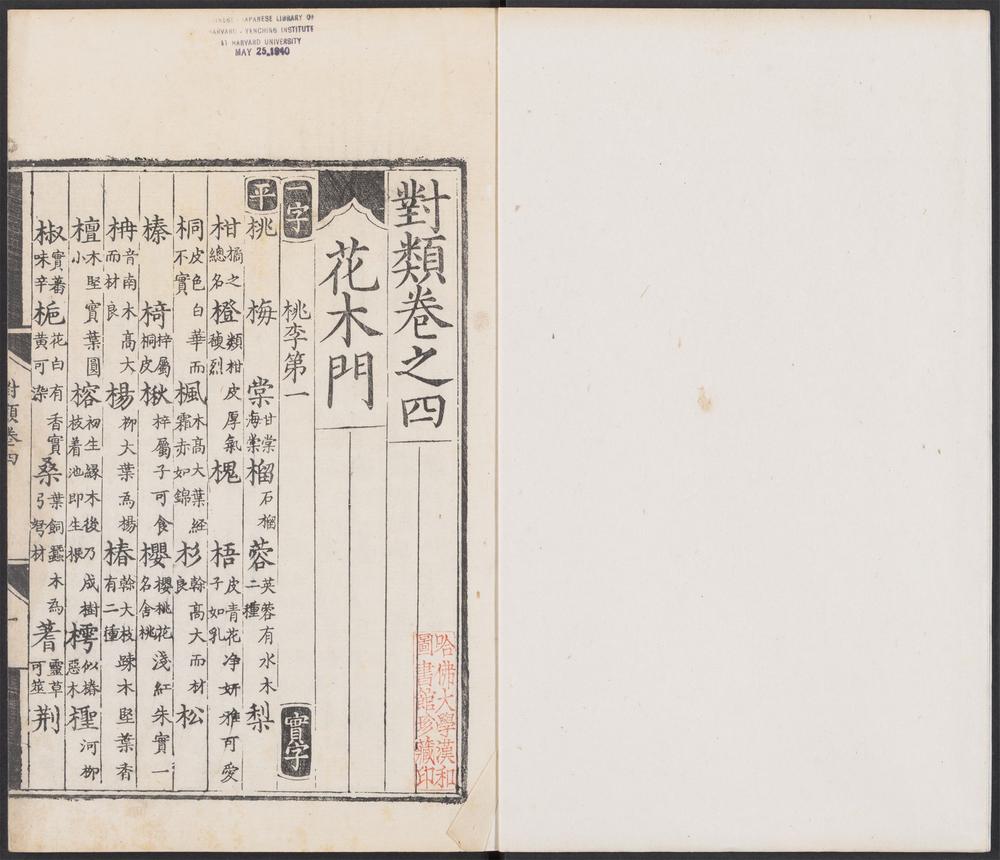 JAPANESE LIBRARY OF
HARVARD-YENCHING INSTITUTE
AT HARVARD UNIVERSITY
MAY 25 1940
對類卷之四
哈佛大學漢和
圖書館珍藏印
花木門
一字 桃李第一 實字
平 桃 梅 棠甘棠海棠 榴石榴 蓉芙蓉有水木二種 梨
柑橘之總名 橙類柑皮厚氣馥烈 槐 梧皮青花净妍雅可愛子如乳
桐皮色白華而不實 楓木高大葉經霜赤如錦 杉榦高大而材良 松
榛 椅梓屬桐皮 楸梓屬子可食 櫻櫻桃花淺紅朱實一名含桃
柟音南木高大而材良 楊柳大葉為楊 椿榦大枝踈木堅葉香有二種
檀木堅實葉圓小 榕初生緣木後乃成樹枝着池即生根 樗似椿惡木 檉河柳
椒實蕃味辛 梔花白有香實黃可染 桑葉飼蠶木為弓弩材 蓍靈草可筮 荆
對類卷四
一